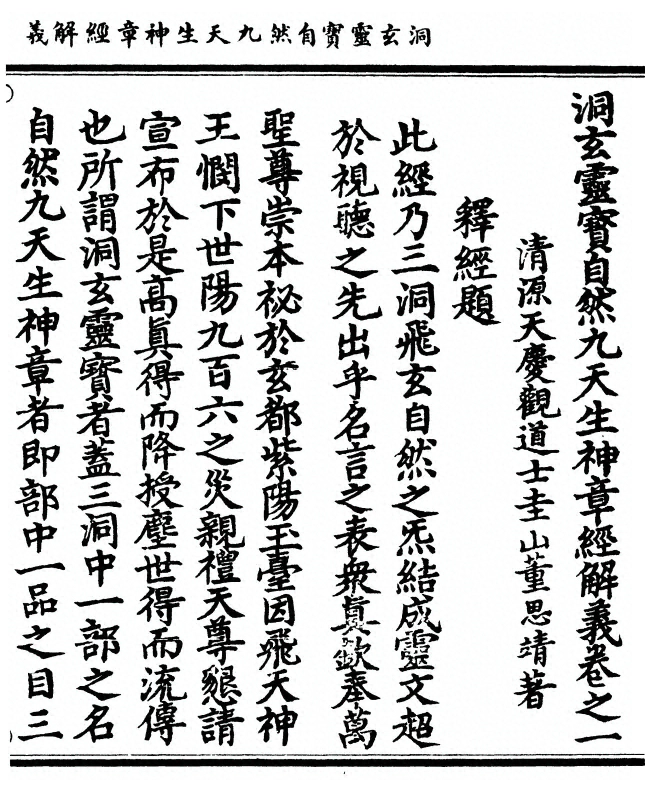 洞玄靈寳自然九天生神章經解義
洞玄靈寳自然九天生神章經解義卷之一
清源天慶觀道士圭山董思靖著
釋經題
此經乃三洞飛玄自然之炁結成靈文超
於視聽之先出乎名言之表衆真欽奉萬
聖尊崇本祕於玄都紫陽玉臺因飛天神
王憫下世陽九百六之災親禮天尊懇請
宣布於是高眞得而降授塵世得而流傳
也所謂洞玄靈寳者蓋三洞中一部之名
自然九天生神章者即部中一品之目三